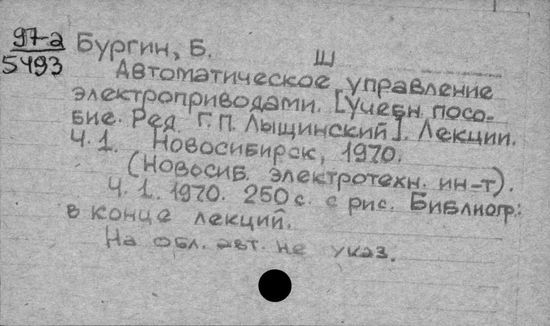 97-а Бургин, Б. Ш
5493 Автоматическое управление
электроприводами. [Учебн. посо-
бие. Ред. Г.П. Лыщинский]. Лекции.
Ч. 1. Новосибирск, 1970.
(Новосиб. электротехн. ин-т).
Ч. 1. 1970. 250 с. с рис. Библиогр.:
в конце лекций.
На обл. авт. не указ.